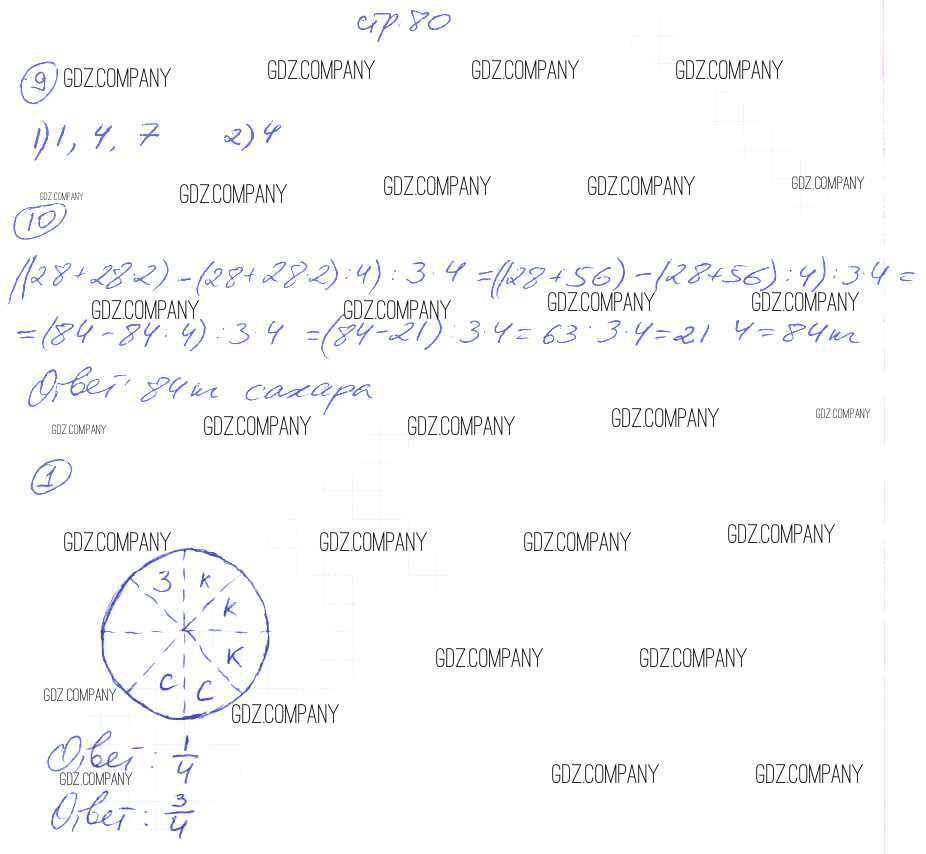 стр. 80
9 GDZ.COMPANY GDZ.COMPANY GDZ.COMPANY GDZ.COMPANY
1) 1, 4, 7 2) 4
GDZ.COMPANY GDZ.COMPANY GDZ.COMPANY GDZ.COMPANY GDZ.COMPANY
10
((28+28·2)-(28+28·2):4):3·4=((28+56)-(28+56):4):3·4=
GDZ.COMPANY GDZ.COMPANY GDZ.COMPANY GDZ.COMPANY
=(84-84:4):3·4=(84-21):3·4=63:3·4=21 4=84кг
Ответ: 84кг сахара
GDZ.COMPANY GDZ.COMPANY GDZ.COMPANY GDZ.COMPANY GDZ.COMPANY
1
GDZ.COMPANY GDZ.COMPANY GDZ.COMPANY GDZ.COMPANY
З К
К
К
С С
GDZ.COMPANY GDZ.COMPANY
GDZ.COMPANY GDZ.COMPANY
Ответ: 1/4
GDZ.COMPANY GDZ.COMPANY GDZ.COMPANY
Ответ: 3/4